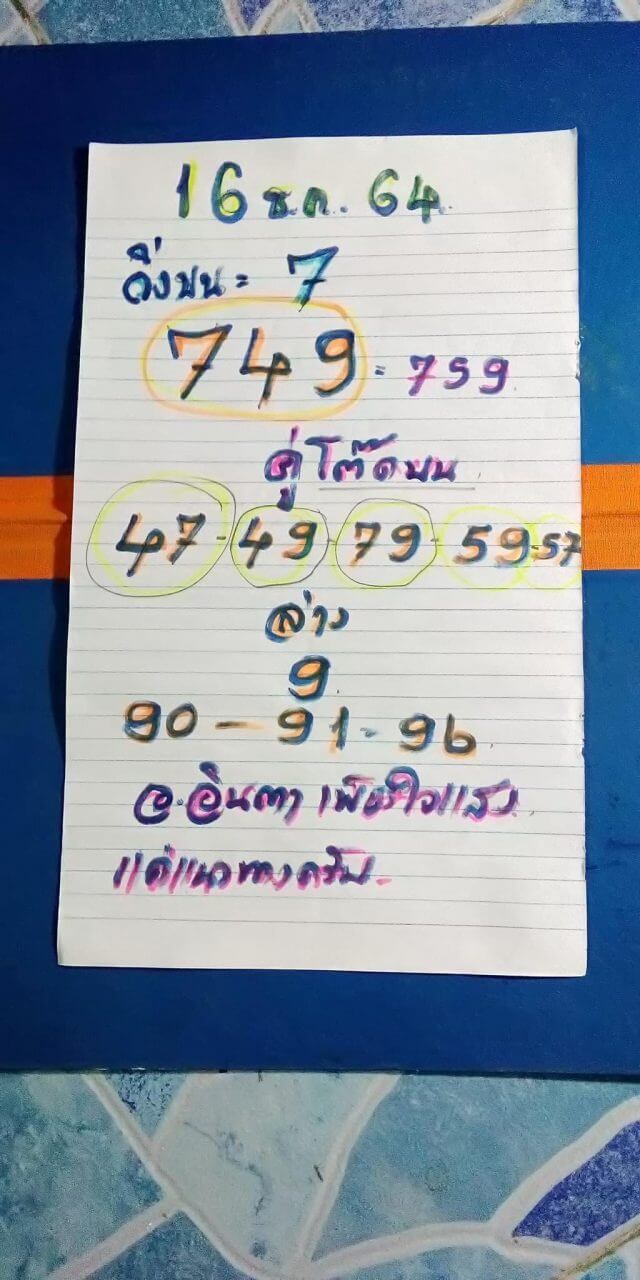 16 ธ.ค. 64
วิ่งบน = 7
749 = 759
คู่โต๊ดบน
47 - 49 - 79 - 59 - 57
ล่าง
9
90 - 91 - 96
อ.อินตา เพียงใจแสง
แค่แนวทางครับ